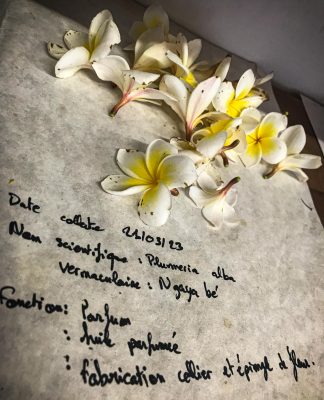 Date collecte 21/03/23
Nom scientifique : Plumeria alba
vermaculaire : Ngaya bé
Fonction : Parfum
: huile parfumée
: Fabrication collier et épingle de fleur.